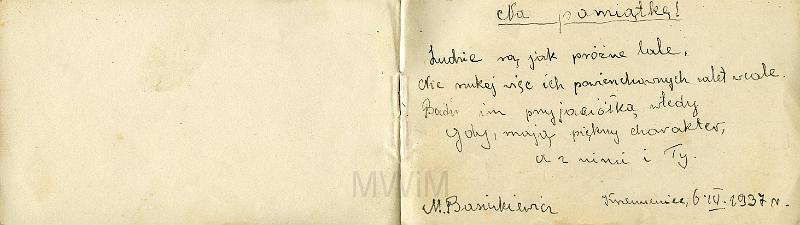 Na pamiątkę!
Ludzie są jak próżne lale,
Nie szukej więc ich powierzchownych zalet wcale.
Bądź im przyjaciółką wtedy
Gdy, mają piękny charakter,
a z nimi i Ty.
M. Basiukiewicz
Krzemieniec, 6 IV. 1937 r.
MWiM